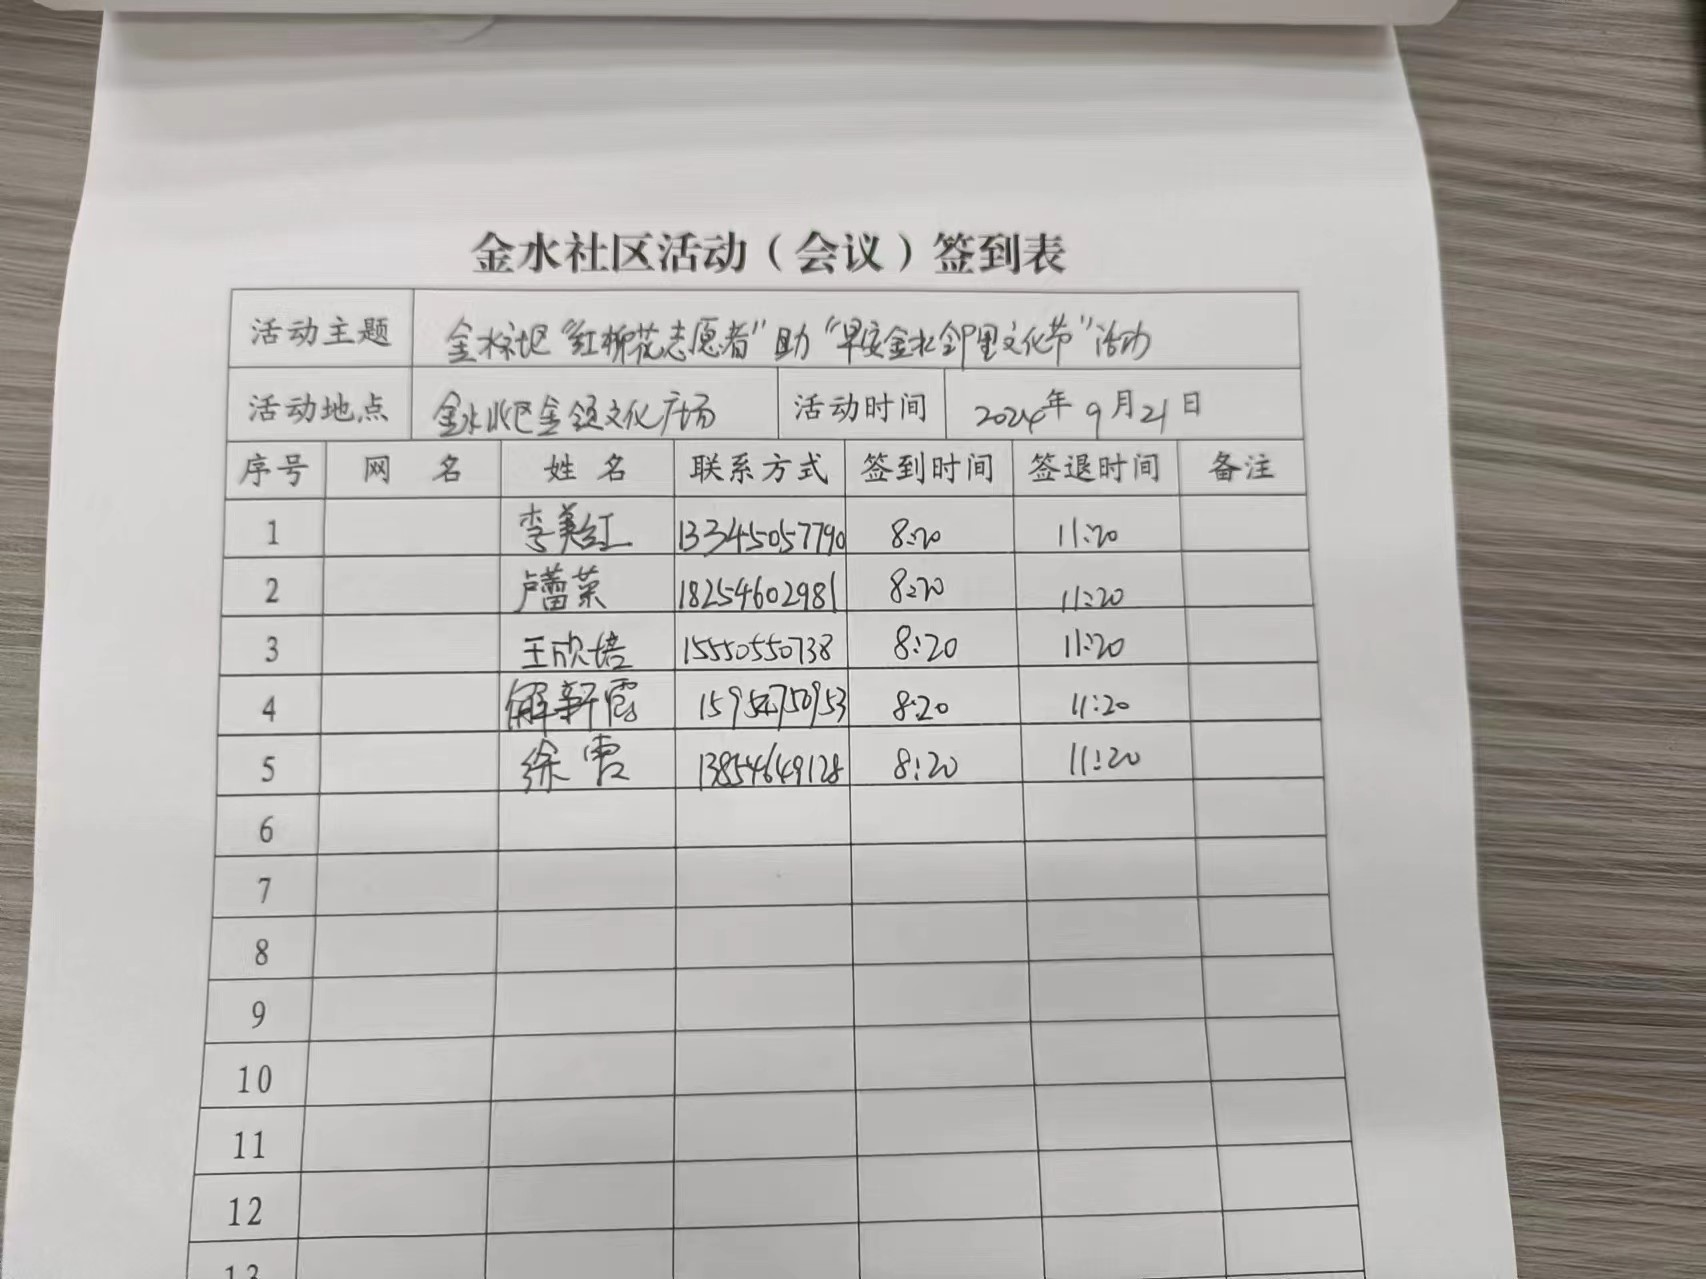 金水社区活动（会议）签到表
活动主题 金水社区“红柳花志愿者”助“早安金水邻里文化节”活动
活动地点 金水社区金领文化广场 活动时间 2024年9月21日
序号 网 名 姓 名 联系方式 签到时间 签退时间 备注
1 李美红 13345057790 8:20 11:20
2 卢蕾菜 18254602981 8:20 11:20
3 王欣培 15550550738 8:20 11:20
4 解新霞 8:20 11:20
5 徐霞 13854649128 8:20 11:20
6
7
8
9
10
11
12
13